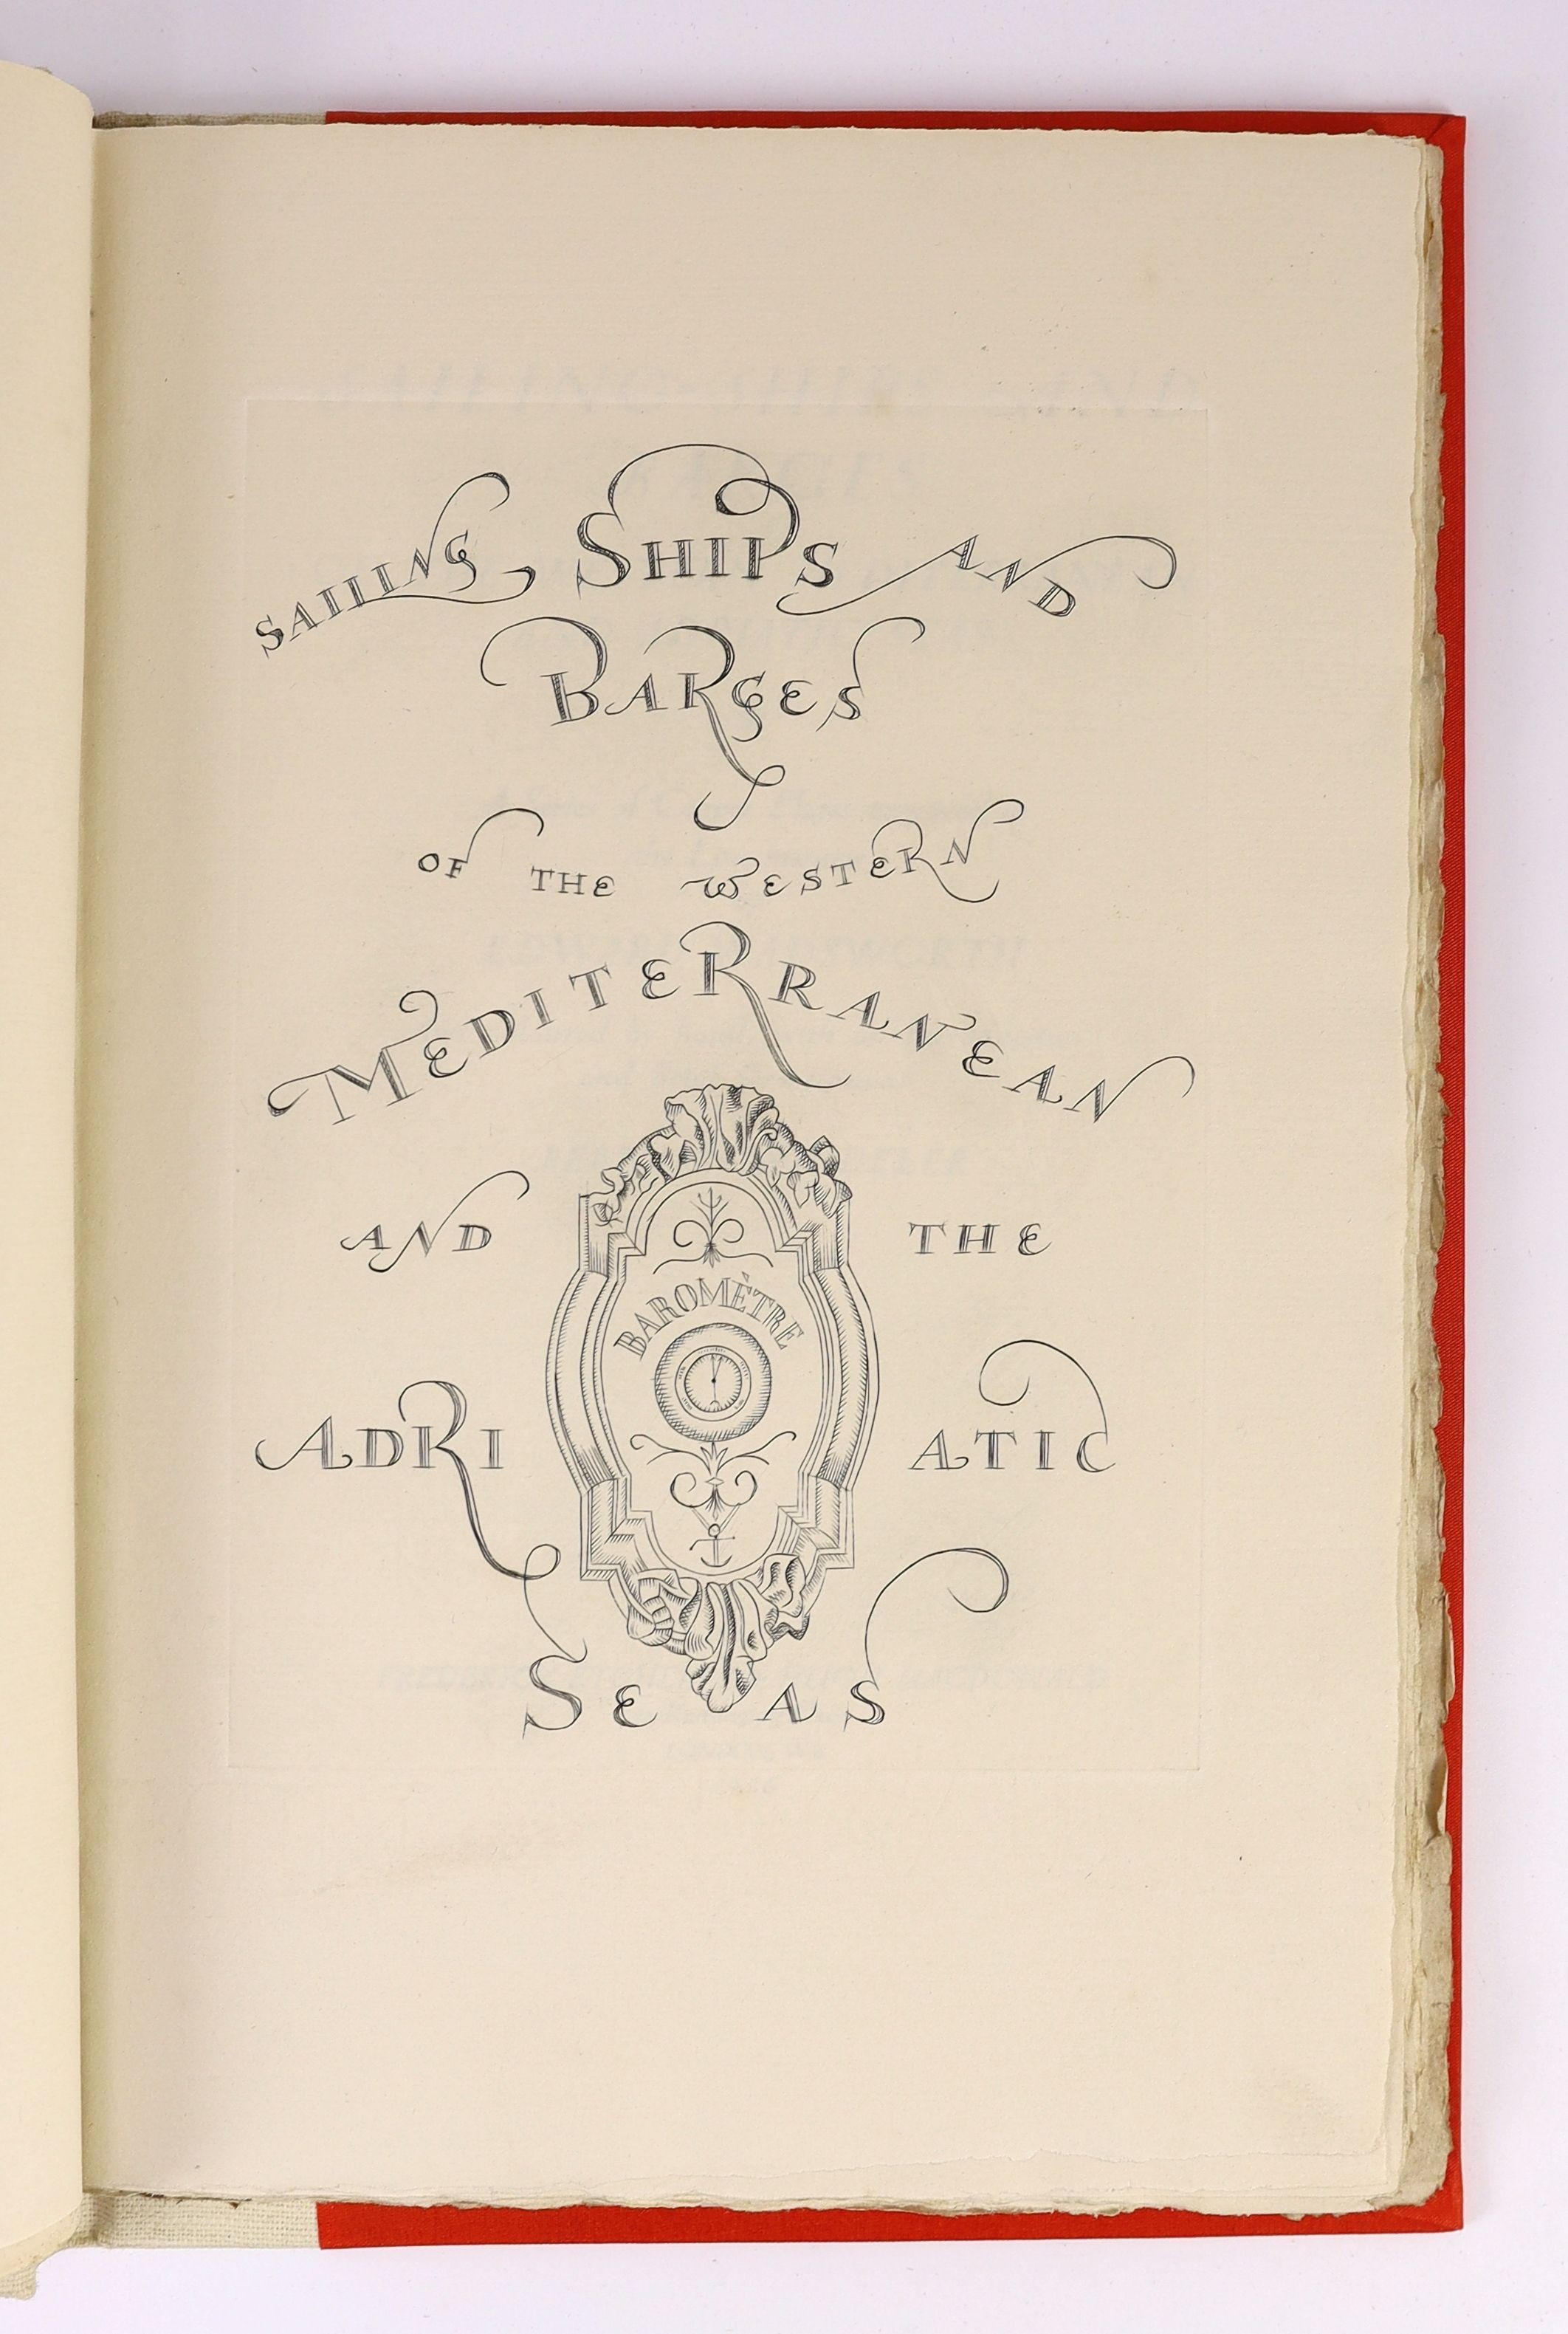 SAILING SHIPS AND
BARGES
OF THE WESTERN
MEDITERRANEAN
AND THE
BAROMÈTRE
ADRI ATIC
SEAS